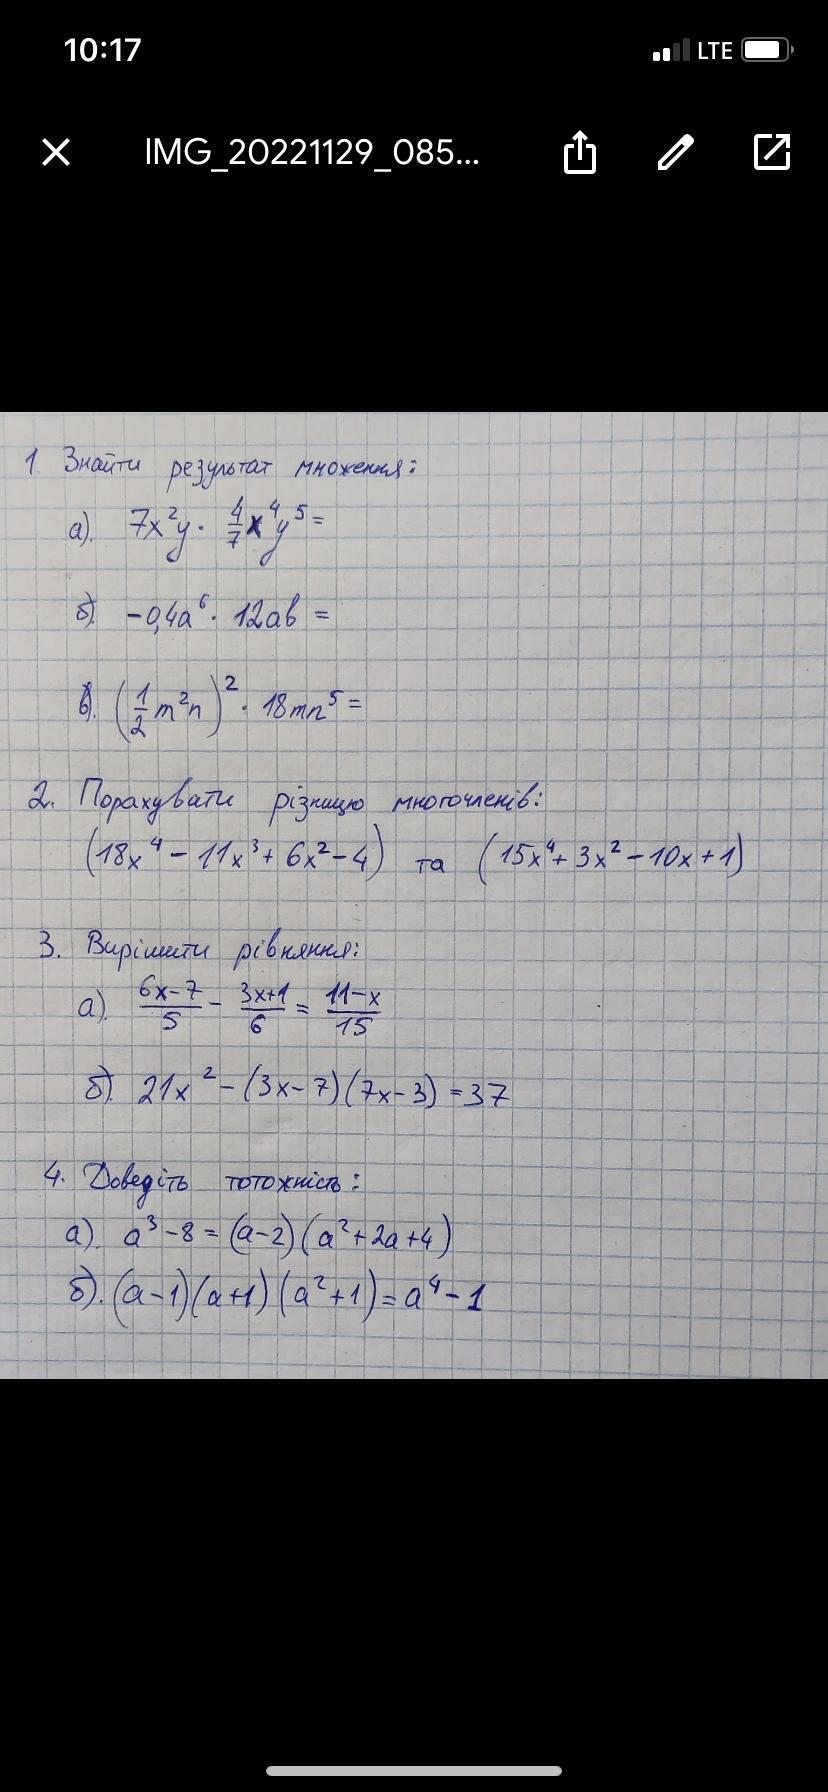 10:17
LTE
IMG_20221129_085...
1. Знайти результат множення:
а). 7x²y · 4/7 x⁴y⁵ =
б). -0,4a⁶ · 12ab =
в). (1/2 m²n)² · 18mn⁵ =
2. Порахувати різницю многочленів:
(18x⁴ - 11x³ + 6x² - 4) та (15x⁴ + 3x² - 10x + 1)
3. Вирішити рівняння:
а). (6x-7)/5 - (3x+1)/6 = (11-x)/15
б). 21x² - (3x-7)(7x-3) = 37
4. Доведіть тотожність:
а). a³ - 8 = (a-2)(a² + 2a + 4)
б). (a-1)(a+1)(a²+1) = a⁴ - 1